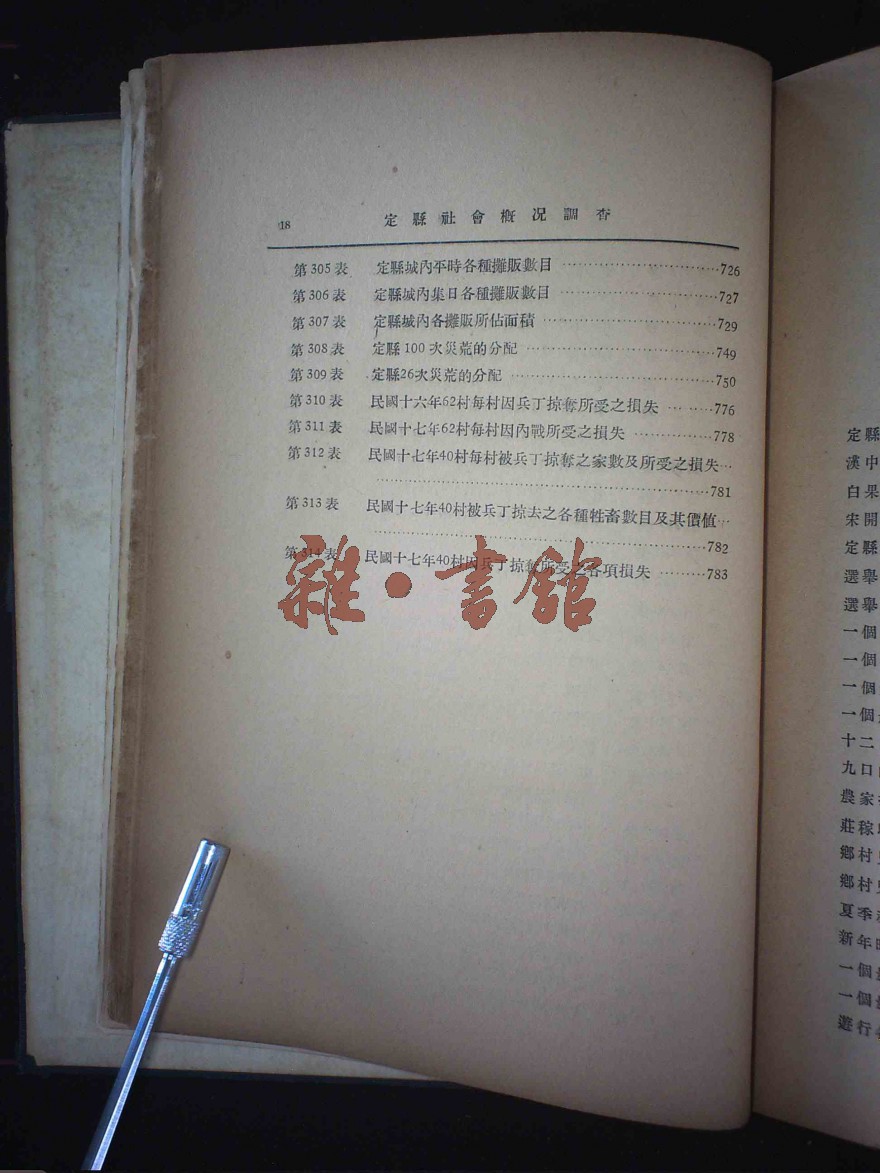 18 定縣社會概況調查
第305表 定縣城內平時各種攤販數目 ……726
第306表 定縣城內集日各種攤販數目 ……727
第307表 定縣城內各攤販所佔面積 ……729
第308表 定縣100次災荒的分配 ……749
第309表 定縣26次災荒的分配 ……750
第310表 民國十六年62村每村因兵丁掠奪所受之損失 ……776
第311表 民國十七年62村每村因內戰所受之損失 ……778
第312表 民國十七年40村每村被兵丁掠奪之家數及所受之損失…
……781
第313表 民國十七年40村被兵丁掠去之各種牲畜數目及其價值…
……782
第314表 民國十七年40村因兵丁掠奪所受之各項損失 ……783
雜·書館
定縣
漢中
白果
宋開
定縣
選舉
選舉
一個
一個
一個
一個
十二
九口
農家
莊稼
鄉村
鄉村
夏季
新年
一個
一個
遊行